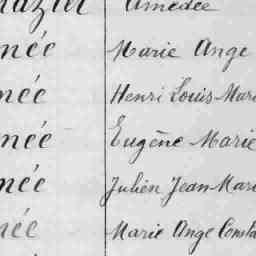 Amédée
née Marie Ange
née Henri Louis Mari
née Eugène Marie
née Julien Jean Mari
née Marie Ange Consta